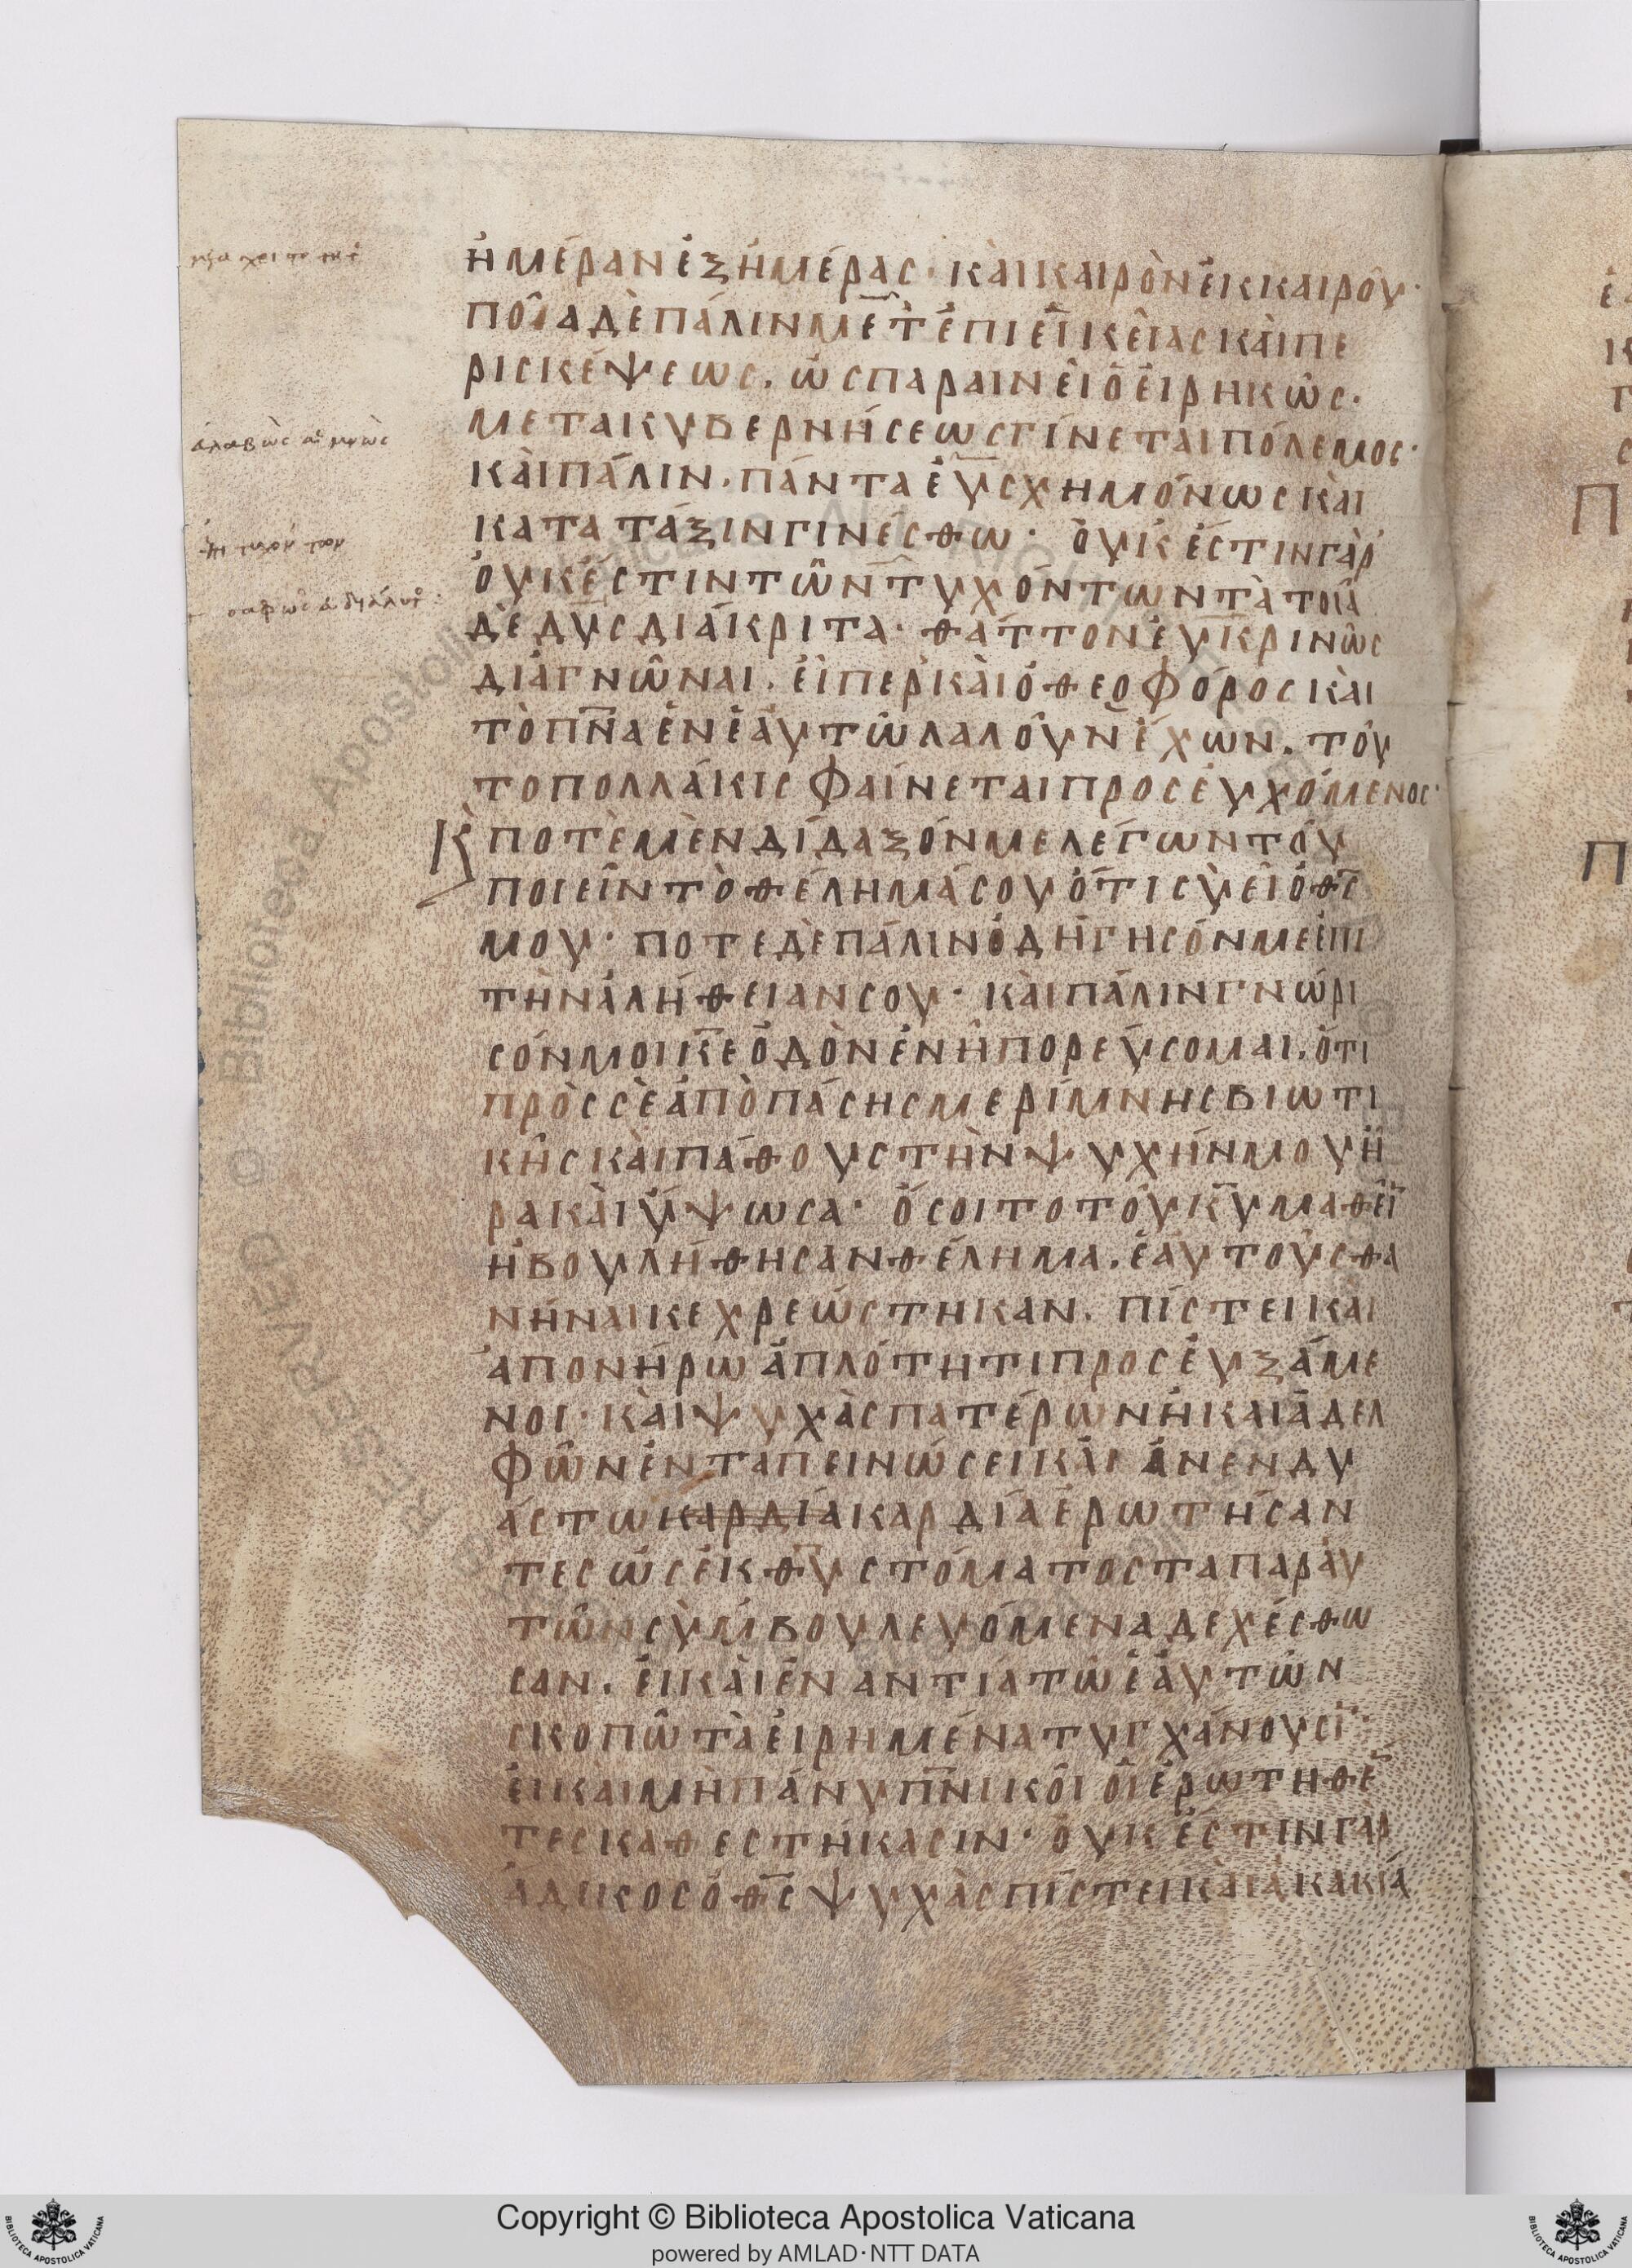 ἡμέραν ἐξ ἡμέρας· καὶ καιρὸν ἐκ καιροῦ·
ποῖα δὲ πάλιν μετ ἐπιεικείας καὶ πε
ρισκέψεως, ὡς παραινεῖ ὁ εἰρηκὼς·
μετα κυβερνήσεως γίνεται πόλεμος·
καὶ πάλιν, πάντα εὐσχημόνως καὶ
κατα τάξιν γινέσθω· οὐκ ἔστιν γὰρ
οὐκ ἔστιν τῶν τυχόντων τὰ τοιαῦ
δὲ δυσδιάκριτα· θᾶττον εὐκρινῶς
διαγνῶναι, εἴπερ καὶ ὁ θεοφόρος καὶ
τὸ πνα ἐν ἑαυτῷ λαλοῦν ἔχων, τοῦ
το πολλάκις φαίνεται προσευχόμενος·
κ ποτὲ μὲν δίδαξόν με λέγων τοῦ
ποιεῖν τὸ θέλημά σου ὅτι σὺ εἶ ὁ θς
μου· ποτε δὲ πάλιν ὁδήγησόν με ἐπι
τὴν ἀλήθειαν σου· καὶ πάλιν γνώρι
σόν μοι κε ὁδὸν ἐν ᾗ πορεύσομαι, ὅτι
πρὸς σὲ ἀπὸ πάσης μερίμνης βιωτι
κῆς καὶ πάθους τὴν ψυχήν μου ἦ
ρα καὶ ὕψωσα· ὅσοι το τοῦ κυ μαθεῖ
ἠβουλήθησαν θέλημα, ἑαυτοὺς θα
νῆναι κεχρεώστηκαν, πίστει καὶ
ἀπονήρω ἁπλότητι προσευξάμε
νοι· καὶ ψυχὰς πατέρων ἢ καὶ ἀδελ
φῶν ἐν ταπεινώσει καὶ ἀνενδυ
άστω καρδία καρδία ἐρωτήσαν
τες ὡς ἐκ θυ στόματος τα παρ αὐ
τῶν συμβουλευόμενα δεχέσθω
σαν, εἰ καὶ ἐναντία τῷ ἑαυτῶν
σκοπῷ τὰ εἰρημένα τυγχάνουσι·
εἰ καὶ μὴ πάνυ πνικοὶ οἱ ἐρωτηθέ
τες καθεστήκασιν· οὐκ ἔστιν γαρ
ἄδικος ὁ θς ψυχὰς πίστει καὶ ἀκακία
Copyright © Biblioteca Apostolica Vaticana
powered by AMLAD·NTT DATA